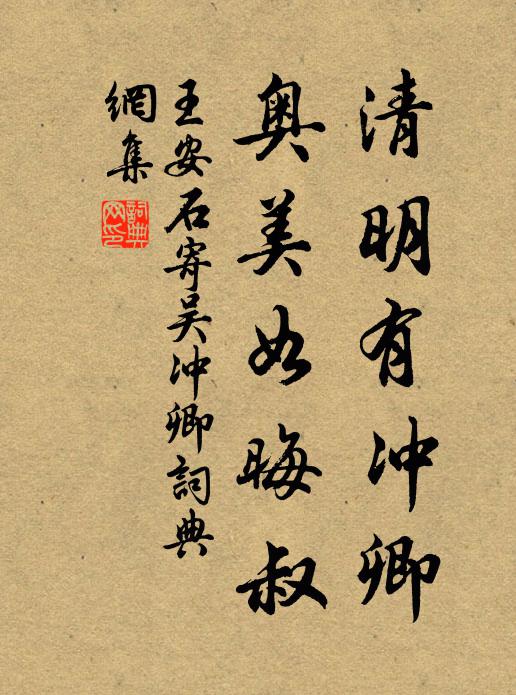 清明有冲卿
奥美如晦叔
王安石寄吴冲卿詞典
網集
詞典
网印